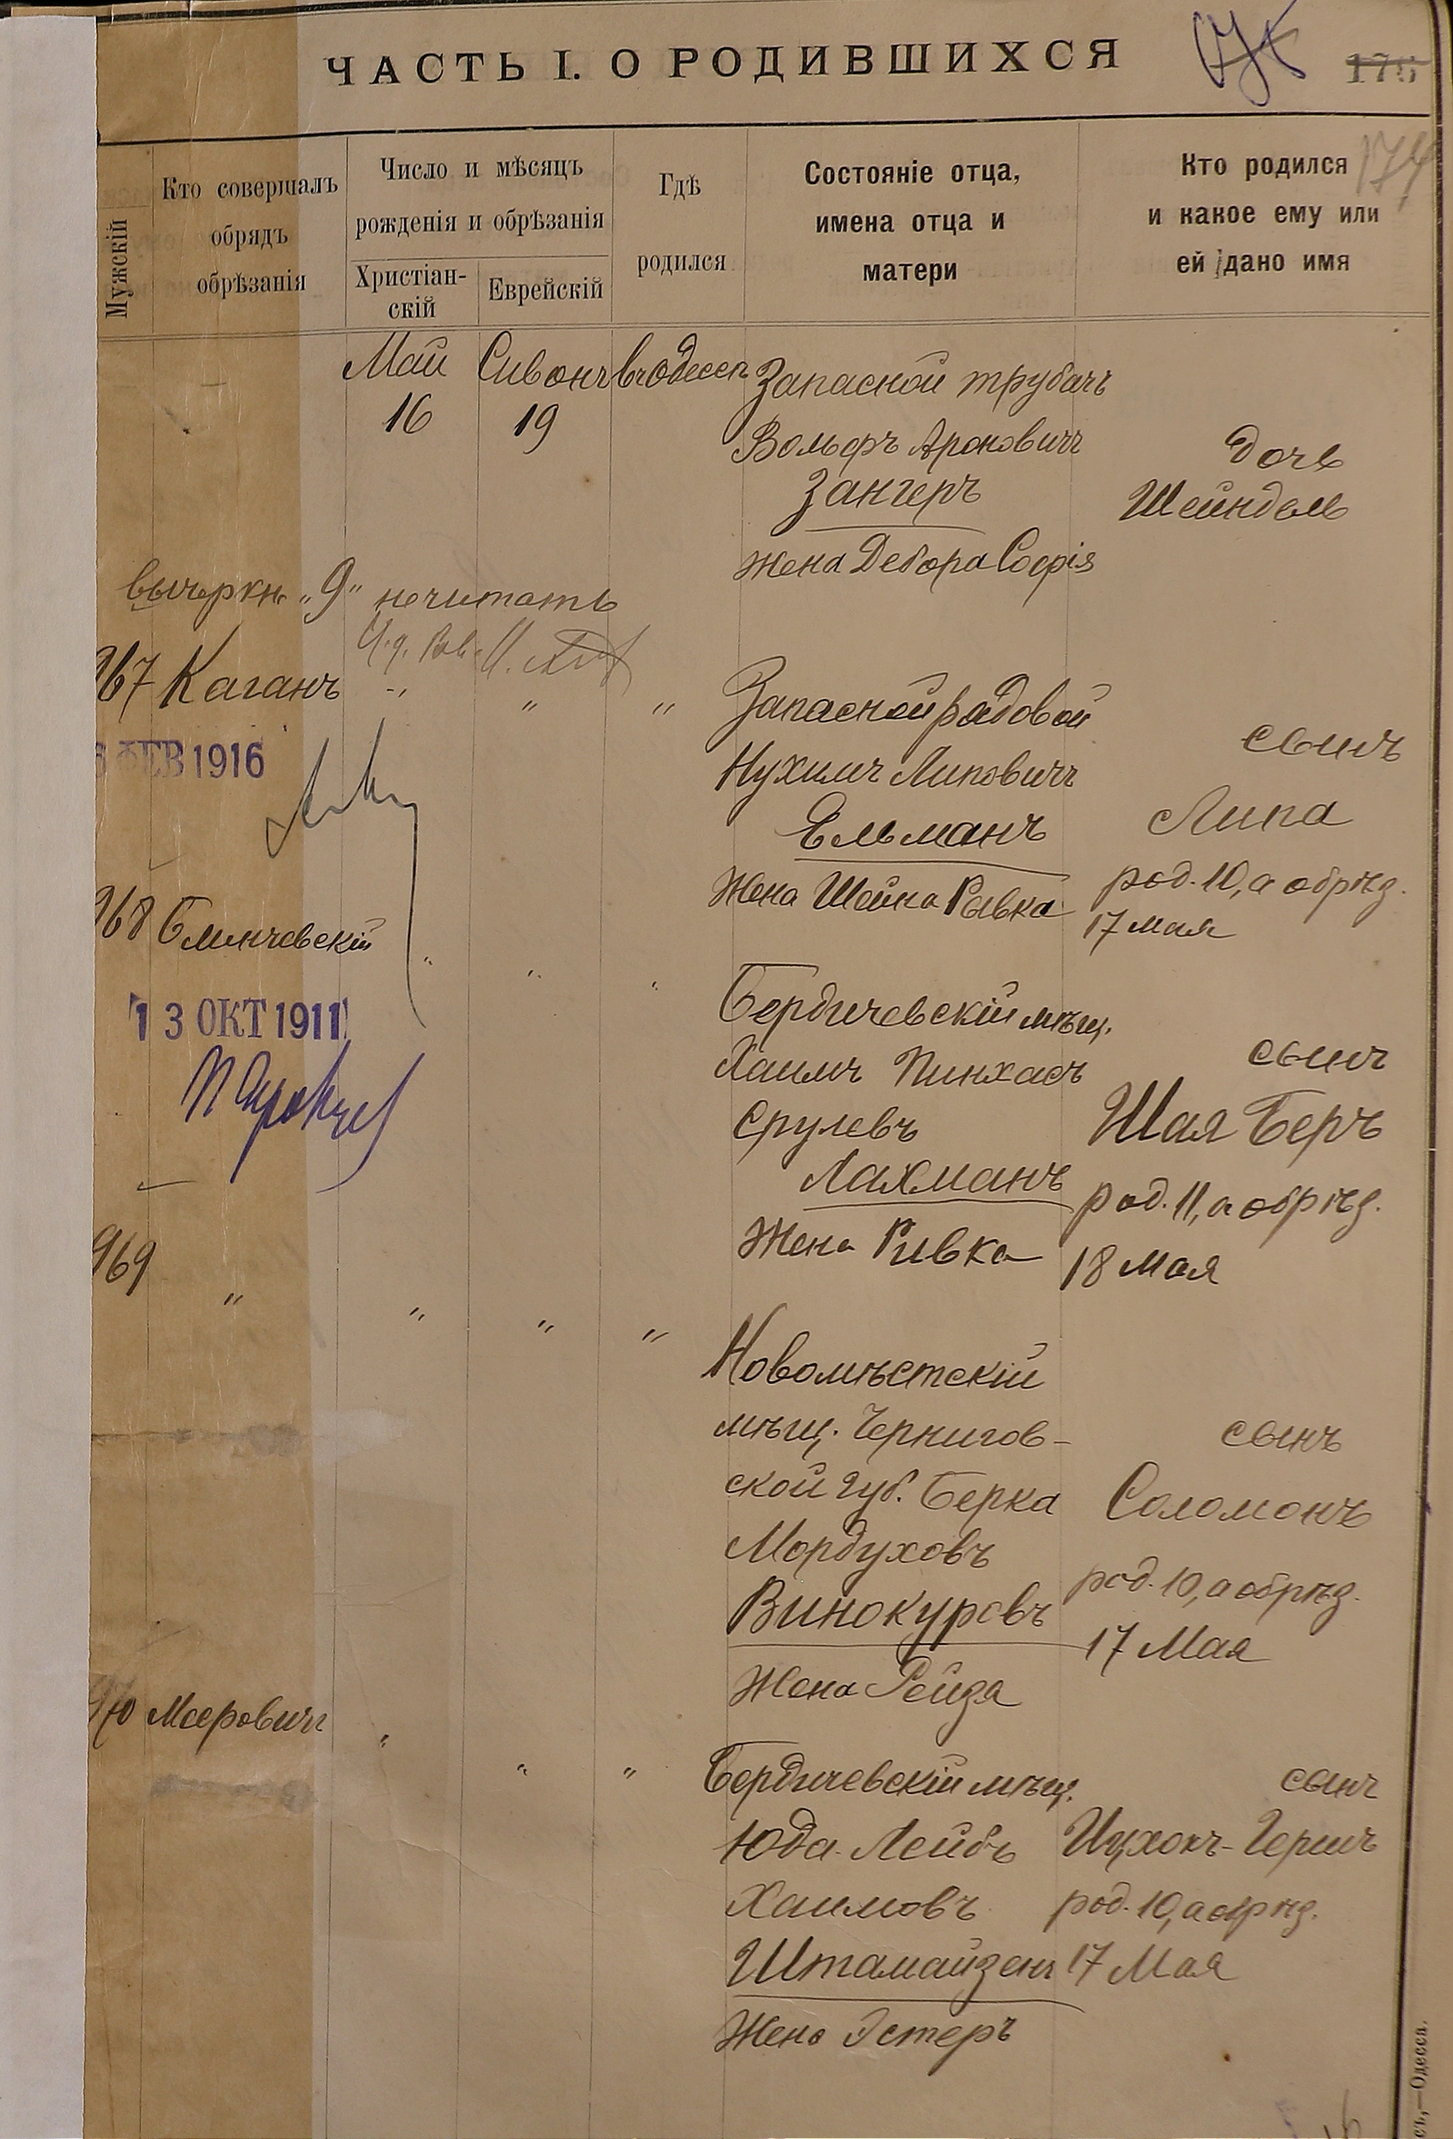 ЧАСТЬ I. О РОДИВШИХСЯ
176
174
Мужскій
Кто совершалъ
обрядъ
обрѣзанія
Число и мѣсяцъ
рожденія и обрѣзанія
Христіан-
скій
Еврейскій
Гдѣ
родился
Состояніе отца,
имена отца и
матери
Кто родился
и какое ему или
ей дано имя
Май
16
Сивонъ
19
въ Одессѣ
Запасной трубачъ
Вольфъ Ароновичъ
Зангеръ
жена Дебора София
дочь
Шейндель
вычеркн. "9" не читать
967 Каганъ
" " "
6 ФЕВ 1916
Запасной рядовой
Нухимъ Липовичъ
Ельманъ
жена Шейна Рывка
сынъ
Липа
род. 10, а обрѣз.
17 мая
968 Блинчевскій
" " "
13 ОКТ 1911
Бердичевскій мѣщ.
Хаимъ Пинхасъ
Срулевъ
Лахманъ
жена Ривка
сынъ
Шая Беръ
род. 11, а обрѣз.
18 мая
969 " " " "
Новомѣстскій
мѣщ. Чернигов-
ской губ. Берка
Мордуховъ
Винокуровъ
жена Рейза
сынъ
Соломонъ
род. 10, а обрѣз.
17 Мая
970 Мееровичъ
" " "
Бердичевскій мѣщ.
Юда-Лейбъ
Хаимовъ
Штамайзенъ
жена Эстеръ
сынъ
Ицхокъ-Гершъ
род. 10, а обрѣз.
17 Мая
съ,—Одесса.